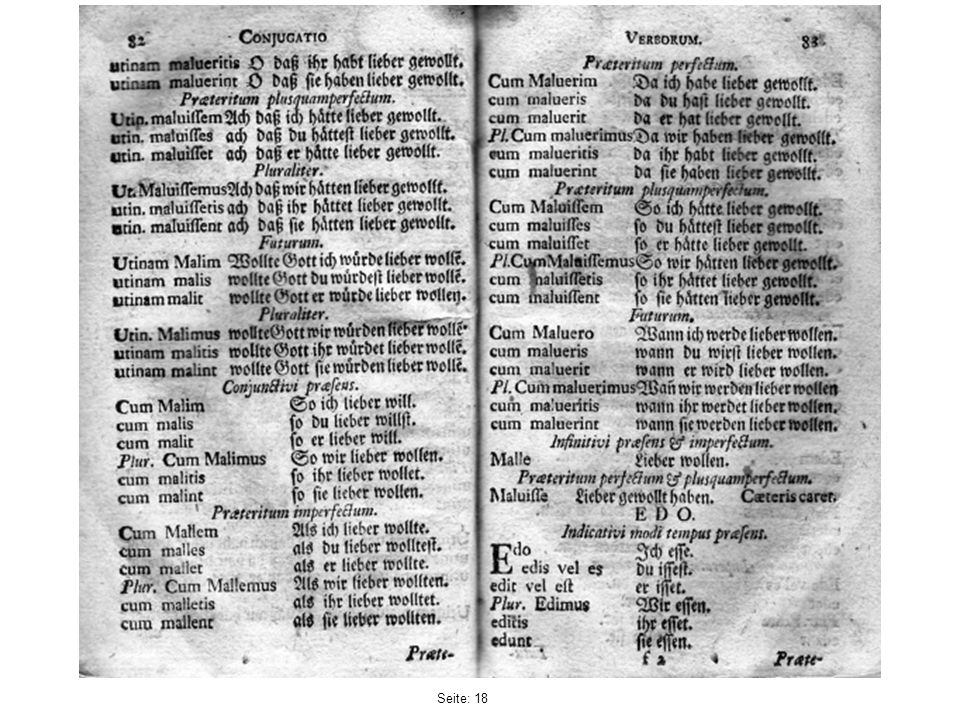 82 CONJUGATIO
utinam malueritis O daß ihr habt lieber gewollt.
utinam maluerint O daß sie haben lieber gewollt.
Præteritum plusquamperfectum.
Utin. maluissem Ach daß ich hätte lieber gewollt.
utin. maluisses ach daß du hättest lieber gewollt.
utin. maluisset ach daß er hätte lieber gewollt.
Pluraliter.
Ut. Maluissemus Ach daß wir hätten lieber gewollt.
utin. maluissetis ach daß ihr hättet lieber gewollt.
utin. maluissent ach daß sie hätten lieber gewollt.
Futurum.
Utinam Malim Wollte Gott ich würde lieber wollē.
utinam malis wollte Gott du würdest lieber wollē.
utinam malit wollte Gott er würde lieber wollen.
Pluraliter.
Utin. Malimus wollte Gott wir würden lieber wollē.
utinam malitis wollte Gott ihr würdet lieber wollē.
utinam malint wollte Gott sie würden lieber wollē.
Conjunctivi præsens.
Cum Malim So ich lieber will.
cum malis so du lieber willst.
cum malit so er lieber will.
Plur. Cum Malimus So wir lieber wollen.
cum malitis so ihr lieber wollet.
cum malint so sie lieber wollen.
Præteritum imperfectum.
Cum Mallem Als ich lieber wollte.
cum malles als du lieber wolltest.
cum mallet als er lieber wollte.
Plur. Cum Mallemus Als wir lieber wollten.
cum malletis als ihr lieber wolltet.
cum mallent als sie lieber wollten.
Præte-
VERBORUM. 83
Præteritum perfectum.
Cum Maluerim Da ich habe lieber gewollt.
cum malueris da du hast lieber gewollt.
cum maluerit da er hat lieber gewollt.
Pl. Cum maluerimus Da wir haben lieber gewollt.
cum malueritis da ihr habt lieber gewollt.
cum maluerint da sie haben lieber gewollt.
Præteritum plusquamperfectum.
Cum Maluissem So ich hätte lieber gewollt.
cum maluisses so du hättest lieber gewollt.
cum maluisset so er hätte lieber gewollt.
Pl. Cum Maluissemus So wir hätten lieber gewollt.
cum maluissetis so ihr hättet lieber gewollt.
cum maluissent so sie hätten lieber gewollt.
Futurum.
Cum Maluero Wann ich werde lieber wollen.
cum malueris wann du wirst lieber wollen.
cum maluerit wann er wird lieber wollen.
Pl. Cum maluerimus Wañ wir werden lieber wollen
cum malueritis wann ihr werdet lieber wollen.
cum maluerint wann sie werden lieber wollen.
Infinitivi præsens & imperfectum.
Malle Lieber wollen.
Præteritum perfectum & plusquamperfectum.
Maluisse Lieber gewollt haben. Cæteris caret.
EDO.
Indicativi modi tempus præsens.
Edo Ich esse.
edis vel es du issest.
edit vel est er isset.
Plur. Edimus Wir essen.
editis ihr esset.
edunt sie essen.
f 2 Præte-
Seite: 18